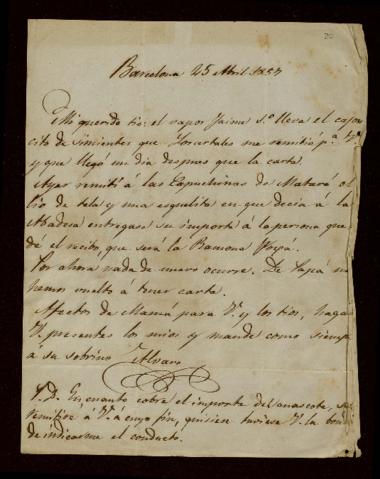 Barcelona 25 Abril 1857
Mi querido tio: el vapor Jaime 2.º lleva el cajon
cito de simientes que me remitió p.ª V.
y que llegó un dia despues que la carta.
Ayer remití á las Capuchinas de Mataró el
lio de tela y una esquelita en que decia á la
Abadesa entregase su importe á la persona que
dé el recibo, que será la Ramona
Por ahora nada de nuevo ocurre. De no
hemos vuelto á tener carta.
Afectos de Mamá para V. y los tios, haga
V. presentes los mios y mande como siempre
á su sobrino Alvaro
P.D. En cuanto cobre el importe del anascote, se
remitiré á V. á cuyo fin, quisiera tuviese V. la bondad
de indicarme el conducto.